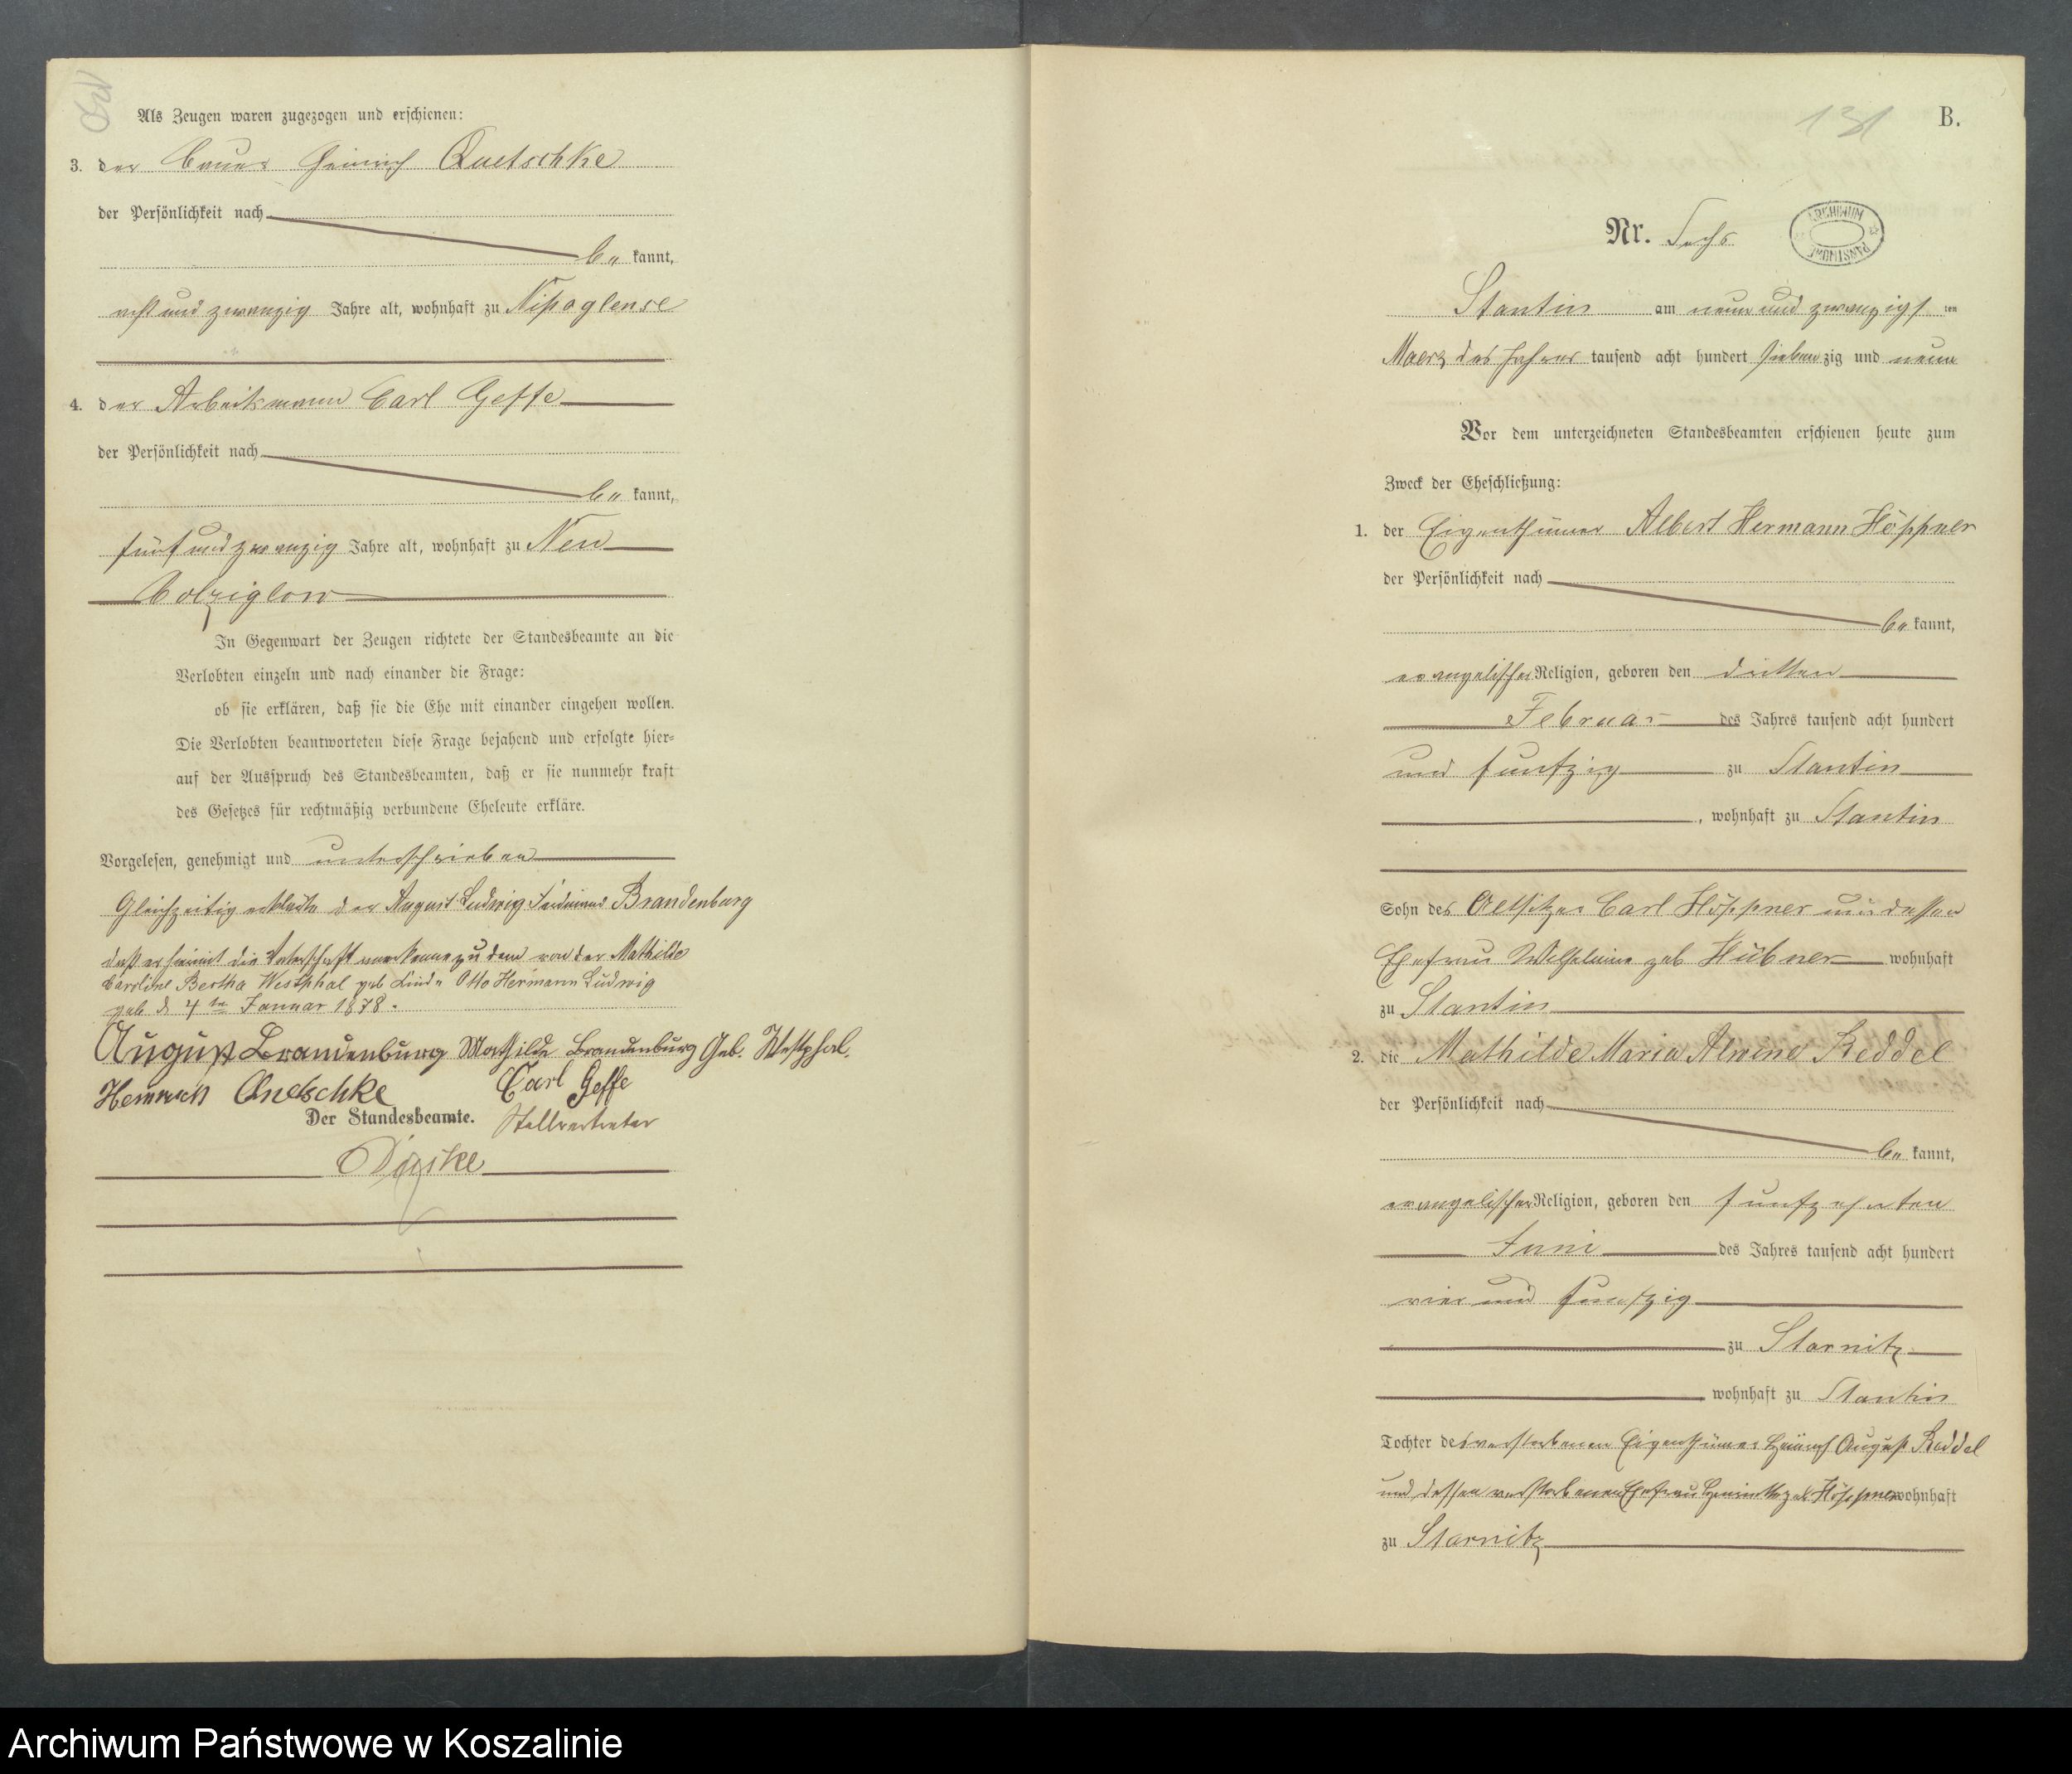 130
Als Zeugen waren zugezogen und erschienen:
3. der Bauer Heinrich Quetschke
der Persönlichkeit nach
be kannt,
acht und zwanzig Jahre alt, wohnhaft zu Nipoglense
4. der Arbeitsmann Carl Geffe
der Persönlichkeit nach
be kannt,
fünf und zwanzig Jahre alt, wohnhaft zu Neu
Colziglow
In Gegenwart der Zeugen richtete der Standesbeamte an die
Verlobten einzeln und nach einander die Frage:
ob sie erklären, daß sie die Ehe mit einander eingehen wollen.
Die Verlobten beantworteten diese Frage bejahend und erfolgte hier-
auf der Ausspruch des Standesbeamten, daß er sie nunmehr kraft
des Gesetzes für rechtmäßig verbundene Eheleute erkläre.
Vorgelesen, genehmigt und unterschrieben
Gleichzeitig erklärte der August Ludwig Ferdinand Brandenburg
daß er hiermit die Vaterschaft anerkenne zu dem von der Mathilde
Caroline Bertha Westphal geb Kinde Otto Hermann Ludwig
geb d 4ten Januar 1878.
August Brandenburg Mathilde Brandenburg Geb. Westphal.
Heinrich Quetschke Carl Geffe
Der Standesbeamte. Stellvertreter
131 B.
Nr. Sechs
ARCHIWUM PAŃSTWOWE
Stantin am neun und zwanzigsten
Maerz des Jahres tausend acht hundert siebenzig und neun
Vor dem unterzeichneten Standesbeamten erschienen heute zum
Zweck der Eheschließung:
1. der Eigenthümer Albert Hermann Höppner
der Persönlichkeit nach
be kannt,
evangelischer Religion, geboren den dritten
Februar des Jahres tausend acht hundert
und funfzig zu Stantin
, wohnhaft zu Stantin
Sohn des Altsitzer Carl Höppner und dessen
Ehefrau Wilhelmine geb Hübner wohnhaft
zu Stantin
2. die Mathilde Maria Alwine Reddel
der Persönlichkeit nach
be kannt,
evangelischer Religion, geboren den funfzehnten
Juni des Jahres tausend acht hundert
vier und funfzig
zu Starnitz
wohnhaft zu Stantin
Tochter des verstorbenen Eigenthümer Heinrich August Reddel
und dessen verstorbenen Ehefrau geb Höppner wohnhaft
zu Starnitz
Archiwum Państwowe w Koszalinie